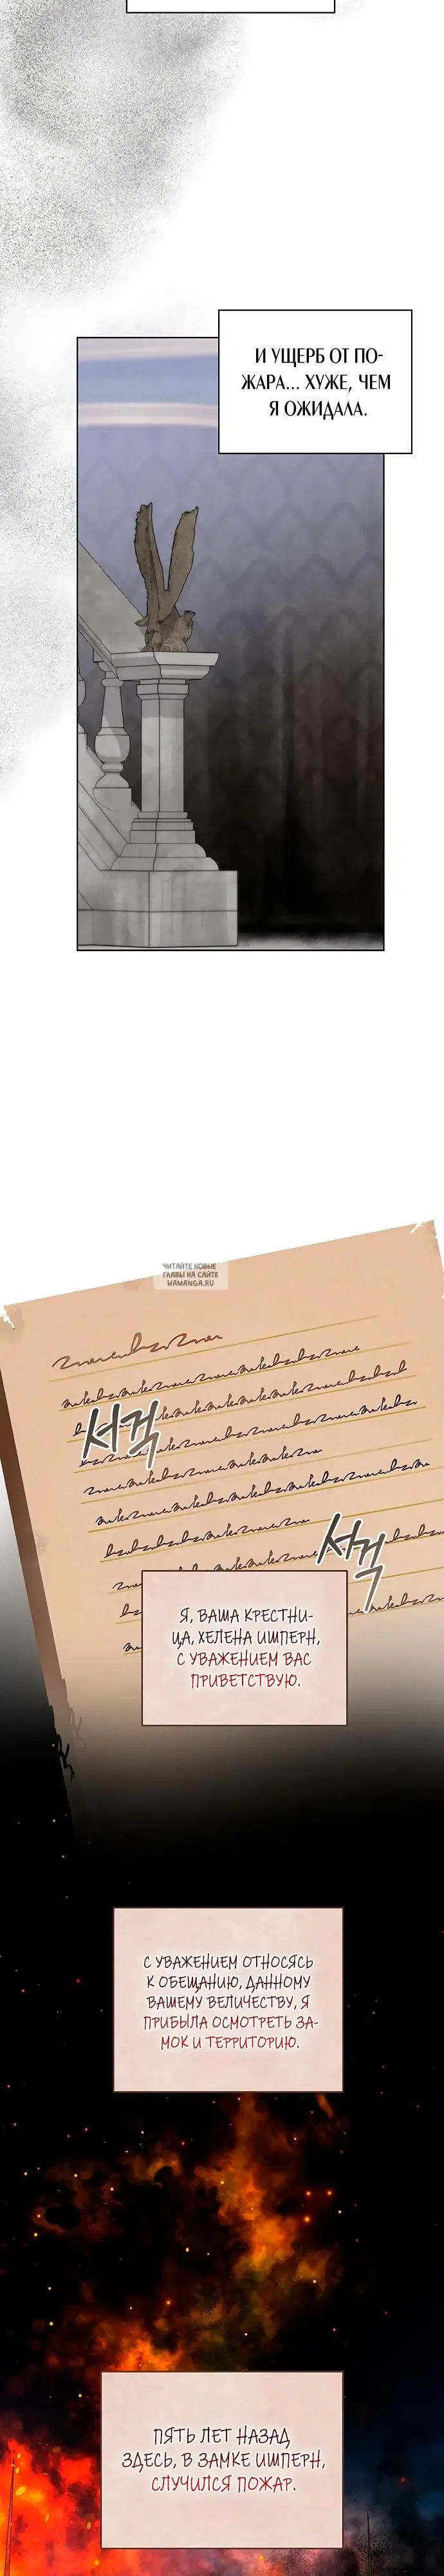 И УЩЕРБ ОТ ПО-
ЖАРА... ХУЖЕ, ЧЕМ
Я ОЖИДАЛА.
ЧИТАЙТЕ НОВЫЕ
ГЛАВЫ НА САЙТЕ
WAMANGA.RU
서걱
서걱
Я, ВАША КРЕСТНИ-
ЦА, ХЕЛЕНА ИМПЕРН,
С УВАЖЕНИЕМ ВАС
ПРИВЕТСТВУЮ.
С УВАЖЕНИЕМ ОТНОСЯСЬ
К ОБЕЩАНИЮ, ДАННОМУ
ВАШЕМУ ВЕЛИЧЕСТВУ, Я
ПРИБЫЛА ОСМОТРЕТЬ ЗА-
МОК И ТЕРРИТОРИЮ.
ПЯТЬ ЛЕТ НАЗАД
ЗДЕСЬ, В ЗАМКЕ ИМПЕРН,
СЛУЧИЛСЯ ПОЖАР.